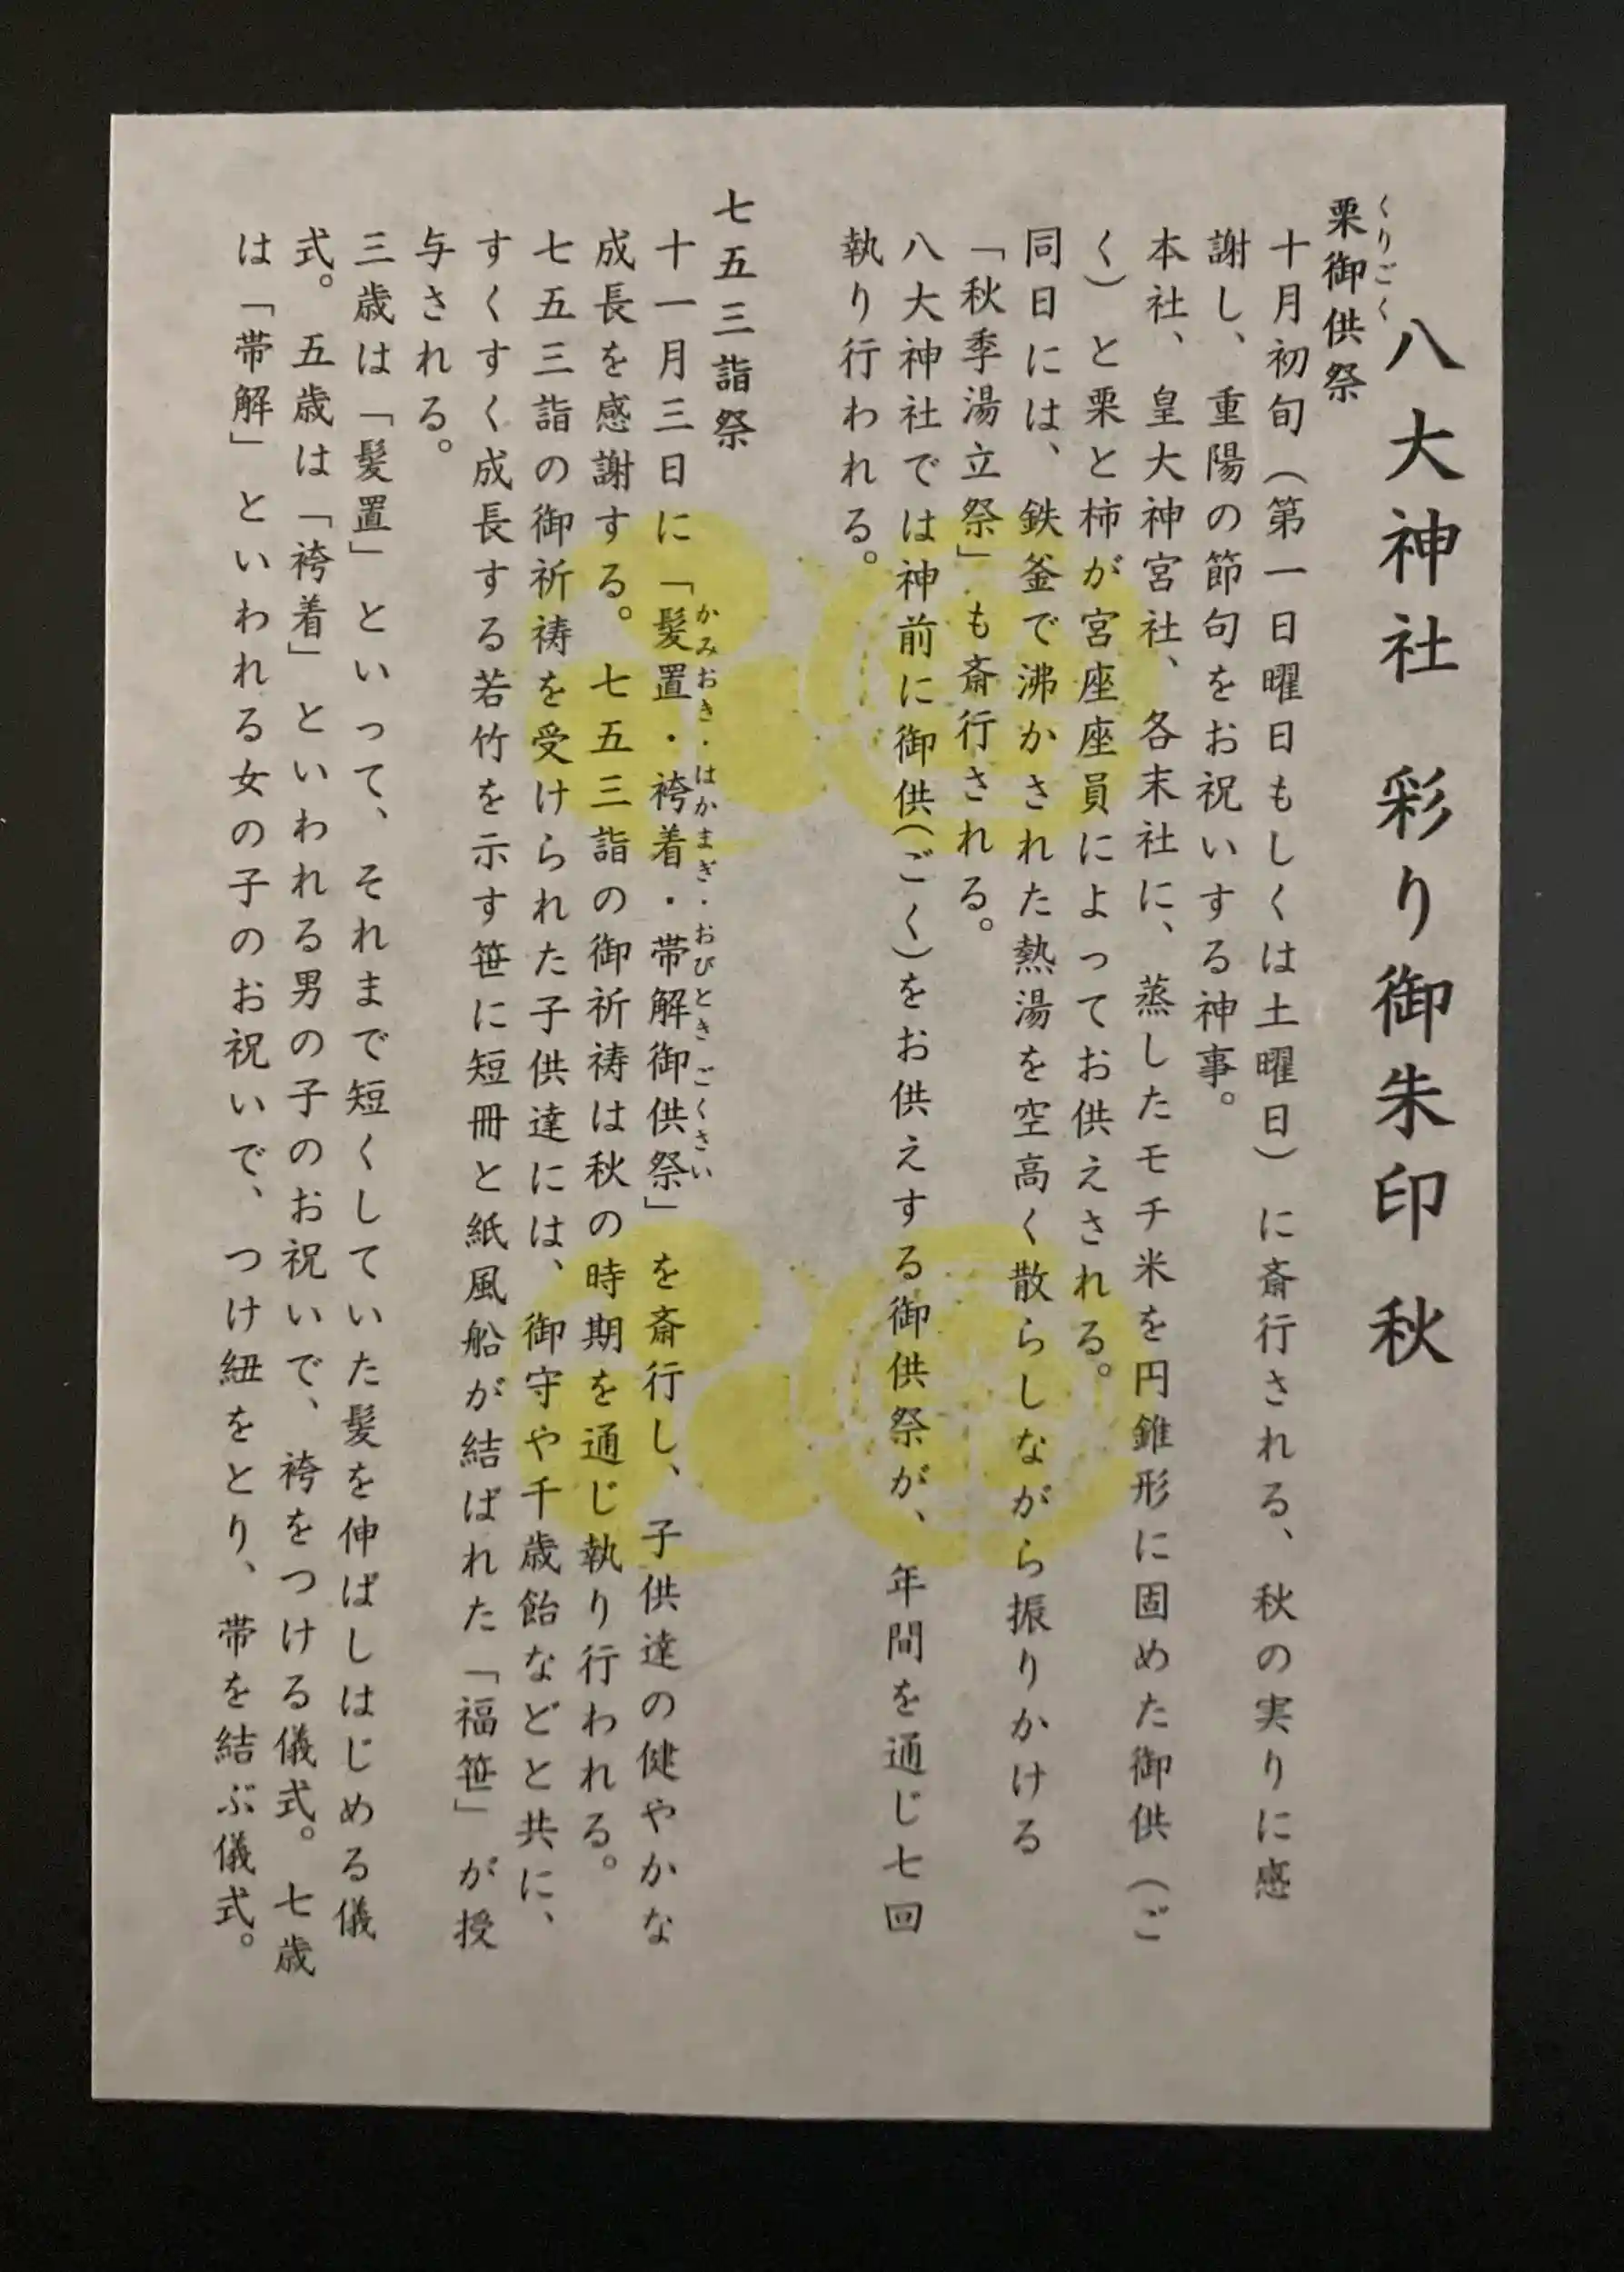 八大神社 彩り御朱印 秋
くりごく
栗御供祭
十月初旬（第一日曜日もしくは土曜日）に斎行される、秋の実りに感
謝し、重陽の節句をお祝いする神事。
本社、皇大神宮社、各末社に、蒸したモチ米を円錐形に固めた御供（ご
く）と栗と柿が宮座座員によってお供えされる。
同日には、鉄釜で沸かされた熱湯を空高く散らしながら振りかける
「秋季湯立祭」も斎行される。
八大神社では神前に御供（ごく）をお供えする御供祭が、年間を通じ七回
執り行われる。
七五三詣祭
かみおき・はかまぎ・おびとき ごくさい
十一月三日に「髪置・袴着・帯解御供祭」を斎行し、子供達の健やかな
成長を感謝する。七五三詣の御祈祷は秋の時期を通じ執り行われる。
七五三詣の御祈祷を受けられた子供達には、御守や千歳飴などと共に、
すくすく成長する若竹を示す笹に短冊と紙風船が結ばれた「福笹」が授
与される。
三歳は「髪置」といって、それまで短くしていた髪を伸ばしはじめる儀
式。五歳は「袴着」といわれる男の子のお祝いで、袴をつける儀式。七歳
は「帯解」といわれる女の子のお祝いで、つけ紐をとり、帯を結ぶ儀式。